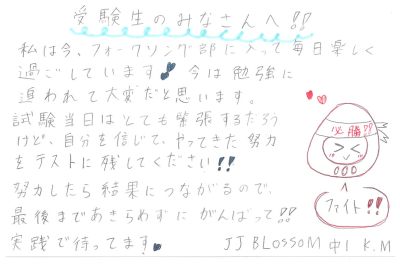 受験生のみなさんへ!!
私は今、フォークソング部に入って毎日楽しく
過ごしています♪ 今は勉強に
追われて大変だと思います。
試験当日はとても緊張するだろう
けど、自分を信じて、やってきた努力
をテストに残してください!!
努力したら結果につながるので、
最後まであきらめずにがんばって!!
実践で待ってます。
JJ BLOSSOM 中1 K.M
必勝!!
ファイト!!